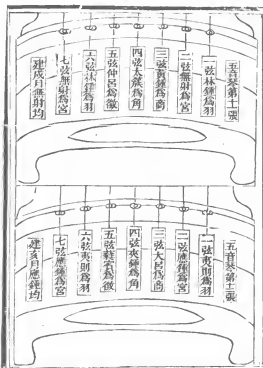 五音琴第十一張
一弦林鍾爲羽
二弦無射爲宮
三弦黃鍾爲商
四弦太簇爲角
五弦仲呂爲徵
六弦林鍾爲羽
七弦無射爲宮
建戌月無射均
五音琴第十二張
一弦夷則爲羽
二弦應鍾爲宮
三弦大呂爲商
四弦夾鍾爲角
五弦蕤賓爲徵
六弦夷則爲羽
七弦應鍾爲宮
建亥月應鍾均